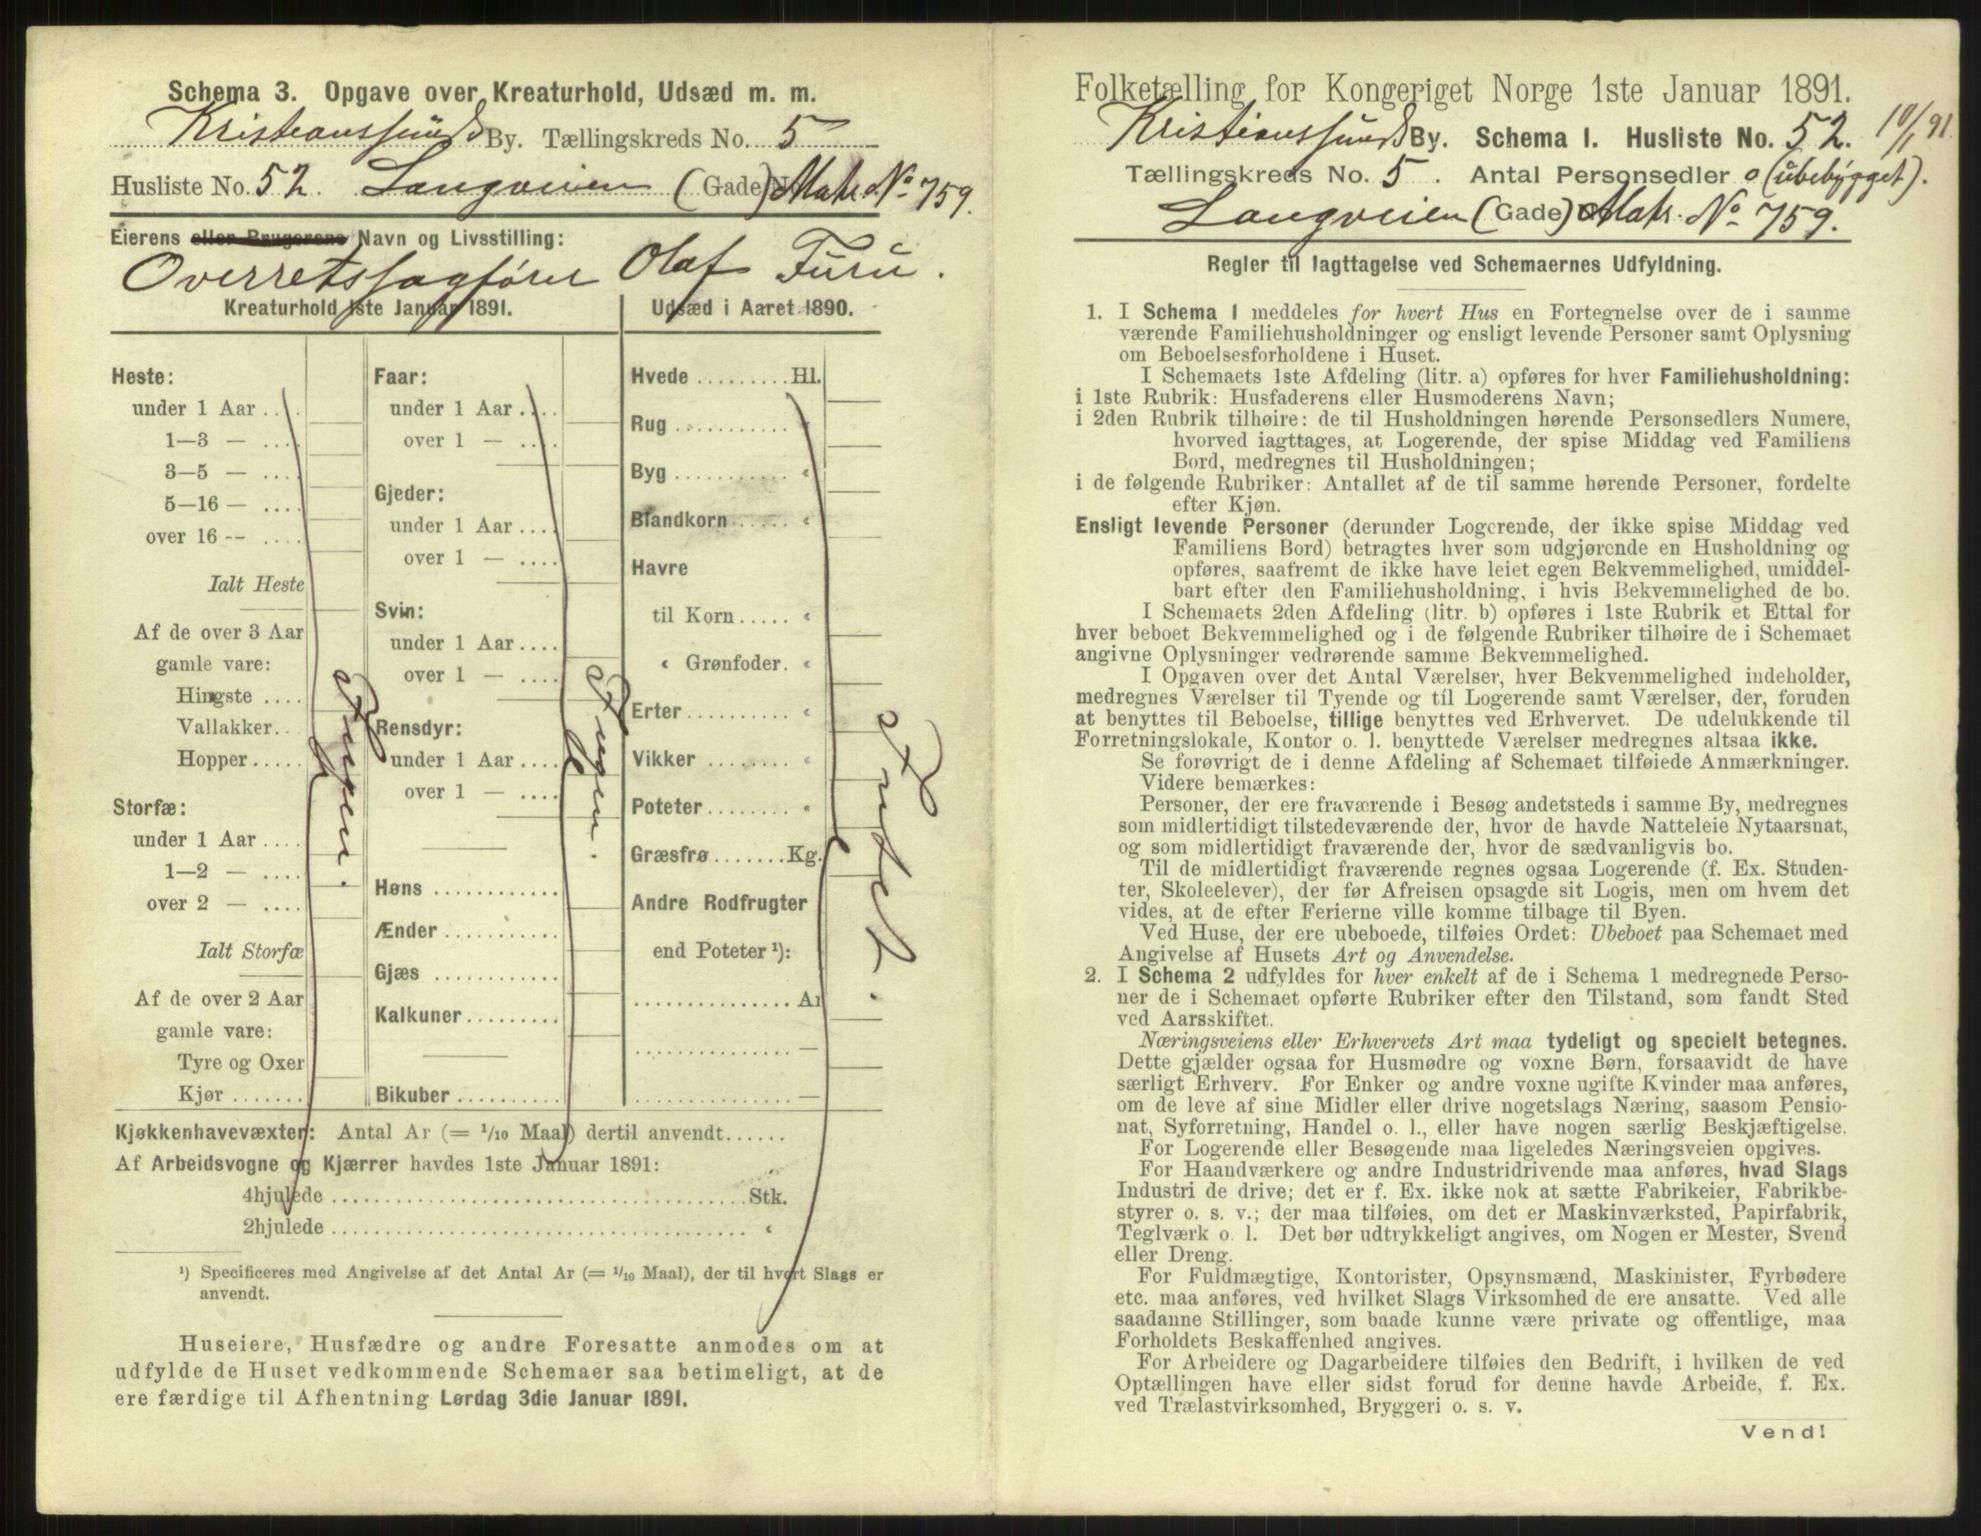 Schema 3. Opgave over Kreaturhold, Udsæd m. m.
Kristianssunds By. Tællingskreds No. 5
Husliste No. 52. Langveien (Gade) Matr. No 759.
Eierens eller Brugerens Navn og Livsstilling:
Overretssagfører Olaf Furu.
Kreaturhold 1ste Januar 1891.
Heste:
under 1 Aar ....
1—3 — ....
3—5 — ....
5—16 — ....
over 16 -- ....
Ialt Heste
Af de over 3 Aar
gamle vare:
Hingste ....
Vallakker...
Hopper.....
Storfæ:
under 1 Aar ....
1—2 — ....
over 2 — ....
Ialt Storfæ
Af de over 2 Aar
gamle vare:
Tyre og Oxer
Kjør .......
Ingen.
Faar:
under 1 Aar ....
over 1 — ....
Gjeder:
under 1 Aar ....
over 1 — ....
Svin:
under 1 Aar ....
over 1 — ....
Rensdyr:
under 1 Aar ....
over 1 — ....
Høns ............
Ænder ...........
Gjæs ............
Kalkuner.........
Bikuber ..........
Ingen.
Udsæd i Aaret 1890.
Hvede .........Hl.
Rug ............ «
Byg ............ «
Blandkorn...... «
Havre
til Korn..... «
« Grønfoder. «
Erter.......... «
Vikker ........ «
Poteter........ «
Græsfrø.......Kg.
Andre Rodfrugter
end Poteter ¹):
............... Ar
............... —
............... —
Kjøkkenhavevæxter: Antal Ar (= 1/10 Maal) dertil anvendt......
Af Arbeidsvogne og Kjærrer havdes 1ste Januar 1891:
4hjulede ........................................Stk.
2hjulede ........................................ «
¹) Specificeres med Angivelse af det Antal Ar (= 1/10 Maal), der til hvert Slags er
anvendt.
Huseiere, Husfædre og andre Foresatte anmodes om at
udfylde de Huset vedkommende Schemaer saa betimeligt, at de
ere færdige til Afhentning Lørdag 3die Januar 1891.
Folketælling for Kongeriget Norge 1ste Januar 1891.
Kristianssunds By. Schema I. Husliste No. 52. 10/1 91.
Tællingskreds No. 5 . Antal Personsedler 0 (ubebygget).
Langveien (Gade) Matr. No 759.
Regler til Iagttagelse ved Schemaernes Udfyldning.
1. I Schema 1 meddeles for hvert Hus en Fortegnelse over de i samme
værende Familiehusholdninger og ensligt levende Personer samt Oplysning
om Beboelsesforholdene i Huset.
I Schemaets 1ste Afdeling (litr. a) opføres for hver Familiehusholdning:
i 1ste Rubrik: Husfaderens eller Husmoderens Navn;
i 2den Rubrik tilhøire: de til Husholdningen hørende Personsedlers Numere,
hvorved iagttages, at Logerende, der spise Middag ved Familiens
Bord, medregnes til Husholdningen;
i de følgende Rubriker: Antallet af de til samme hørende Personer, fordelte
efter Kjøn.
Ensligt levende Personer (derunder Logerende, der ikke spise Middag ved
Familiens Bord) betragtes hver som udgjørende en Husholdning og
opføres, saafremt de ikke have leiet egen Bekvemmelighed, umiddel-
bart efter den Familiehusholdning, i hvis Bekvemmelighed de bo.
I Schemaets 2den Afdeling (litr. b) opføres i 1ste Rubrik et Ettal for
hver beboet Bekvemmelighed og i de følgende Rubriker tilhøire de i Schemaet
angivne Oplysninger vedrørende samme Bekvemmelighed.
I Opgaven over det Antal Værelser, hver Bekvemmelighed indeholder,
medregnes Værelser til Tyende og til Logerende samt Værelser, der, foruden
at benyttes til Beboelse, tillige benyttes ved Erhvervet. De udelukkende til
Forretningslokale, Kontor o. l. benyttede Værelser medregnes altsaa ikke.
Se forøvrigt de i denne Afdeling af Schemaet tilføiede Anmærkninger.
Videre bemærkes:
Personer, der ere fraværende i Besøg andetsteds i samme By, medregnes
som midlertidigt tilstedeværende der, hvor de havde Natteleie Nytaarsnat,
og som midlertidigt fraværende der, hvor de sædvanligvis bo.
Til de midlertidigt fraværende regnes ogsaa Logerende (f. Ex. Studen-
ter, Skoleelever), der før Afreisen opsagde sit Logis, men om hvem det
vides, at de efter Ferierne ville komme tilbage til Byen.
Ved Huse, der ere ubeboede, tilføies Ordet: Ubeboet paa Schemaet med
Angivelse af Husets Art og Anvendelse.
2. I Schema 2 udfyldes for hver enkelt af de i Schema 1 medregnede Perso-
ner de i Schemaet opførte Rubriker efter den Tilstand, som fandt Sted
ved Aarsskiftet.
Næringsveiens eller Erhvervets Art maa tydeligt og specielt betegnes.
Dette gjælder ogsaa for Husmødre og voxne Børn, forsaavidt de have
særligt Erhverv. For Enker og andre voxne ugifte Kvinder maa anføres,
om de leve af sine Midler eller drive nogetslags Næring, saasom Pensio-
nat, Syforretning, Handel o. l., eller have nogen særlig Beskjæftigelse.
For Logerende eller Besøgende maa ligeledes Næringsveien opgives.
For Haandværkere og andre Industridrivende maa anføres, hvad Slags
Industri de drive; det er f. Ex. ikke nok at sætte Fabrikeier, Fabrikbe-
styrer o. s. v.; der maa tilføies, om det er Maskinværksted, Papirfabrik,
Teglværk o. l. Det bør udtrykkeligt angives, om Nogen er Mester, Svend
eller Dreng.
For Fuldmægtige, Kontorister, Opsynsmænd, Maskinister, Fyrbødere
etc. maa anføres, ved hvilket Slags Virksomhed de ere ansatte. Ved alle
saadanne Stillinger, som baade kunne være private og offentlige, maa
Forholdets Beskaffenhed angives.
For Arbeidere og Dagarbeidere tilføies den Bedrift, i hvilken de ved
Optællingen have eller sidst forud for denne havde Arbeide, f. Ex.
ved Trælastvirksomhed, Bryggeri o. s. v.
Vend!